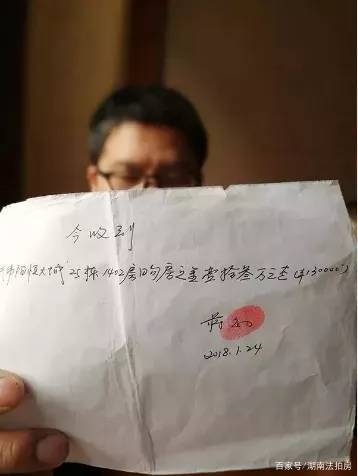 今收到
25栋1402房购房定金壹拾叁万元整(¥130000)
2018.1.24
百家号/湖南法拍房